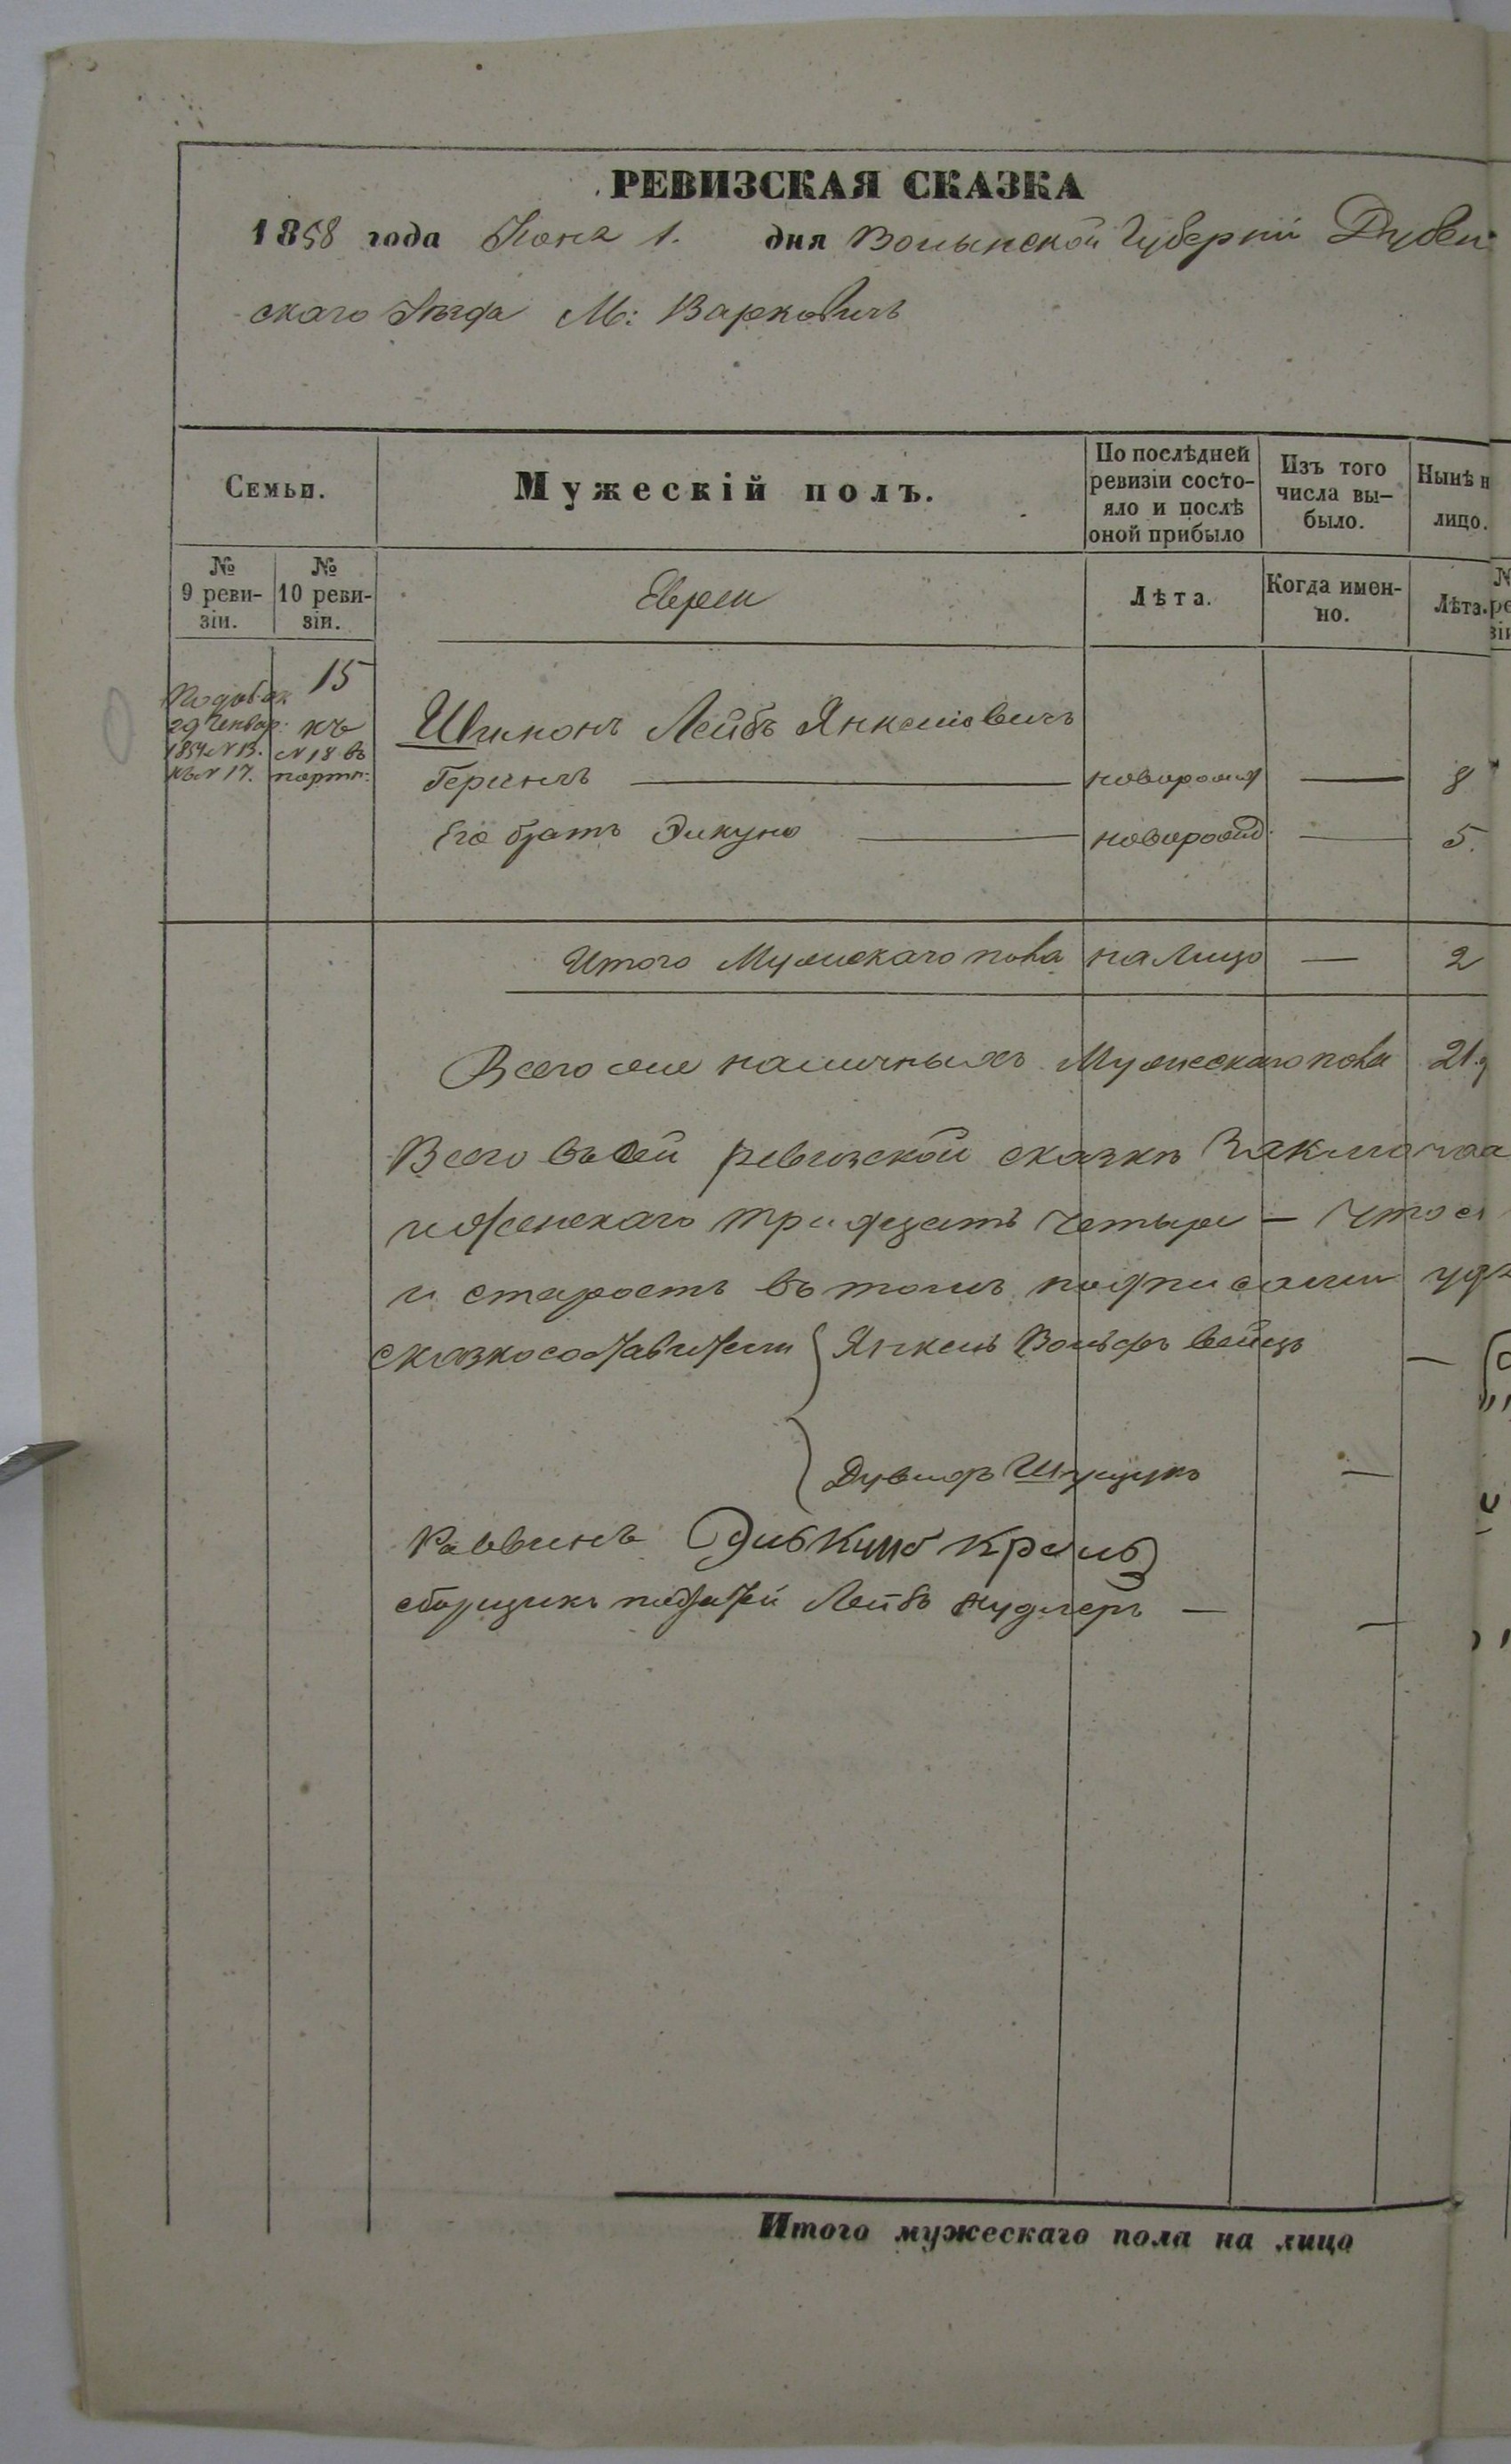 РЕВИЗСКАЯ СКАЗКА
1858 года Июня 1. дня Волынской Губернии Дубен
скаго Уѣзда М: Варковичь
Семьи.
Мужескій полъ.
По послѣдней ревизіи состо-
яло и послѣ
оной прибыло
Изъ того
числа вы-
было.
Нынѣ н
лицо.
№
9 реви-
зіи.
№
10 реви-
зіи.
Евреи
Лѣта.
Когда имен-
но.
Лѣта.
15
29 Генвар:
1854 N 13.
къ N 17.
къ
N 18 въ
Лейбъ Янкелiовичъ
новорожд — 8
Его братъ новорожд — 5.
Итого Мужескаго пола на лицо — 2
Всего же наличныхъ Мужескаго пола 21.
Всего въ сей ревизской сказкѣ Заключаа
и женскаго тридцать четыре — что
и старость въ томъ подписали удо
сказкосоставители Янкель Вольфъ Вейцъ —
Дувидъ —
Раввинъ Кроль
сборщикъ податей Лейбъ Кудлеръ —
Итого мужескаго пола на лицо